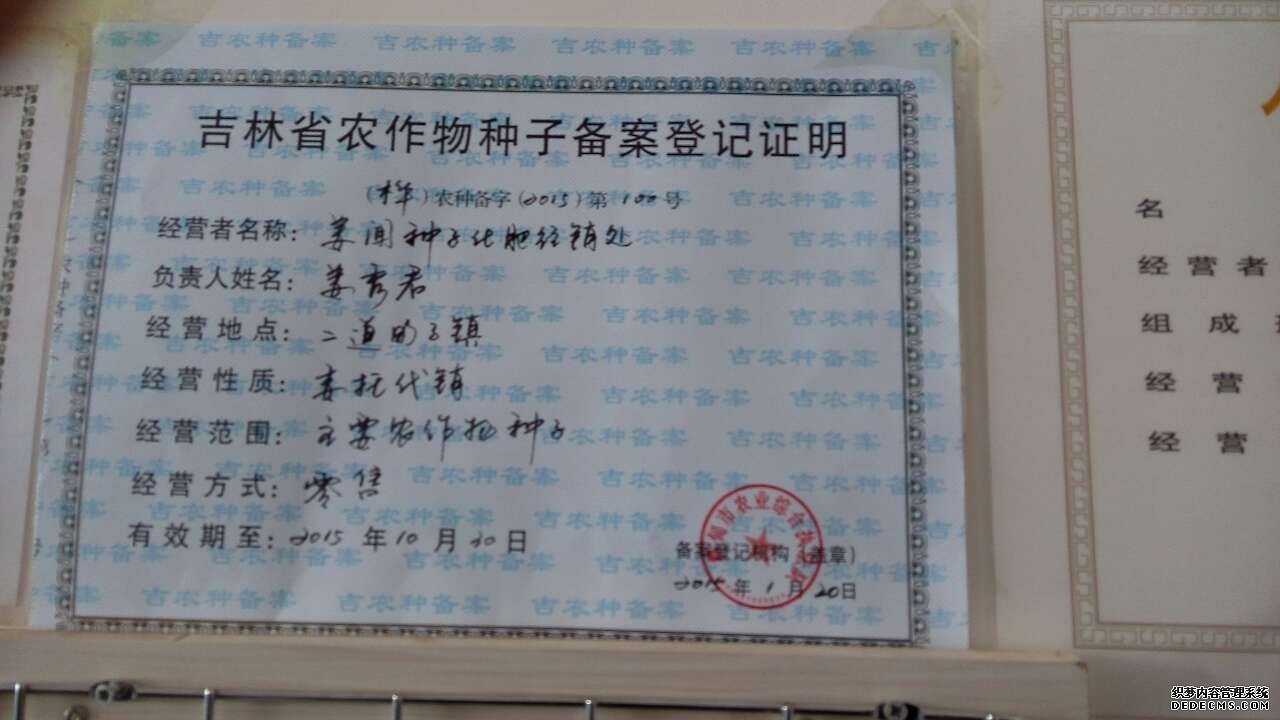 吉农种备案 吉农种备案 吉农种备案 吉农种备案
吉林省农作物种子备案登记证明
(桦)农种备字(2015)第100号
经营者名称:姜闻种子化肥经销处
负责人姓名:姜秀君
经营地点:二道甸子镇
经营性质:委托代销
经营范围:主要农作物种子
经营方式:零售
有效期至:2015年10月20日
备案登记机构(盖章)
2015年1月20日
名
经营者
组成
经营
经营
织梦内容管理系统
DEDECMS.COM